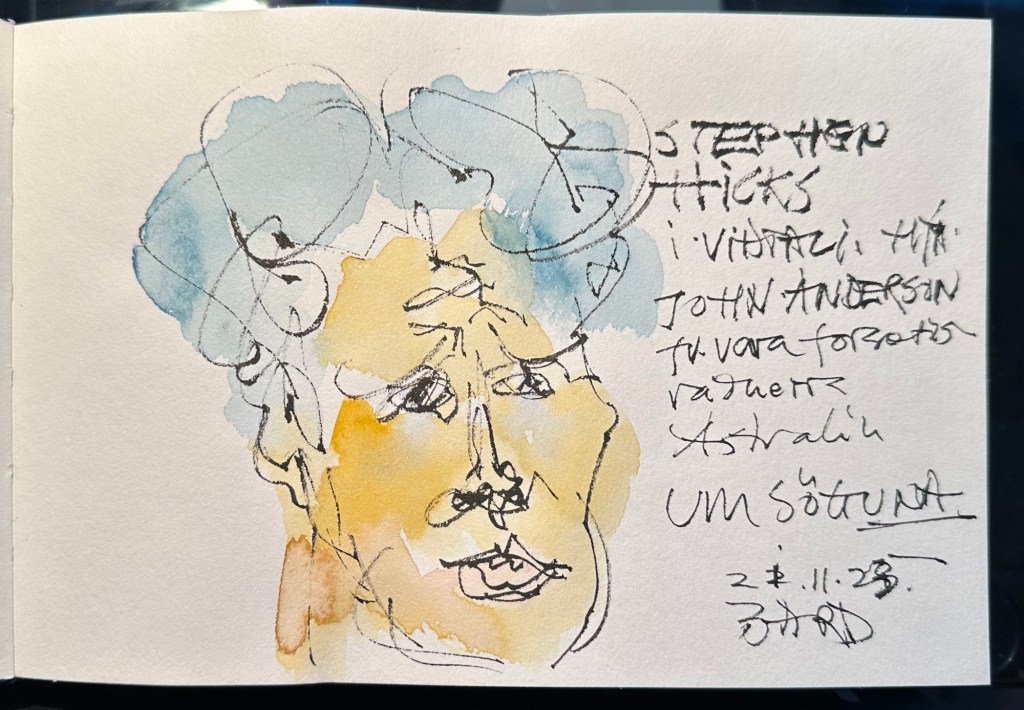 STEPHEN
HICKS
i. VIÐTALI. HJÁ.
JOHN. ANDERSON
fv. vara forsætis
ráðherra
Ástralíu
UM SÖGUNA.
11.23.
BARD